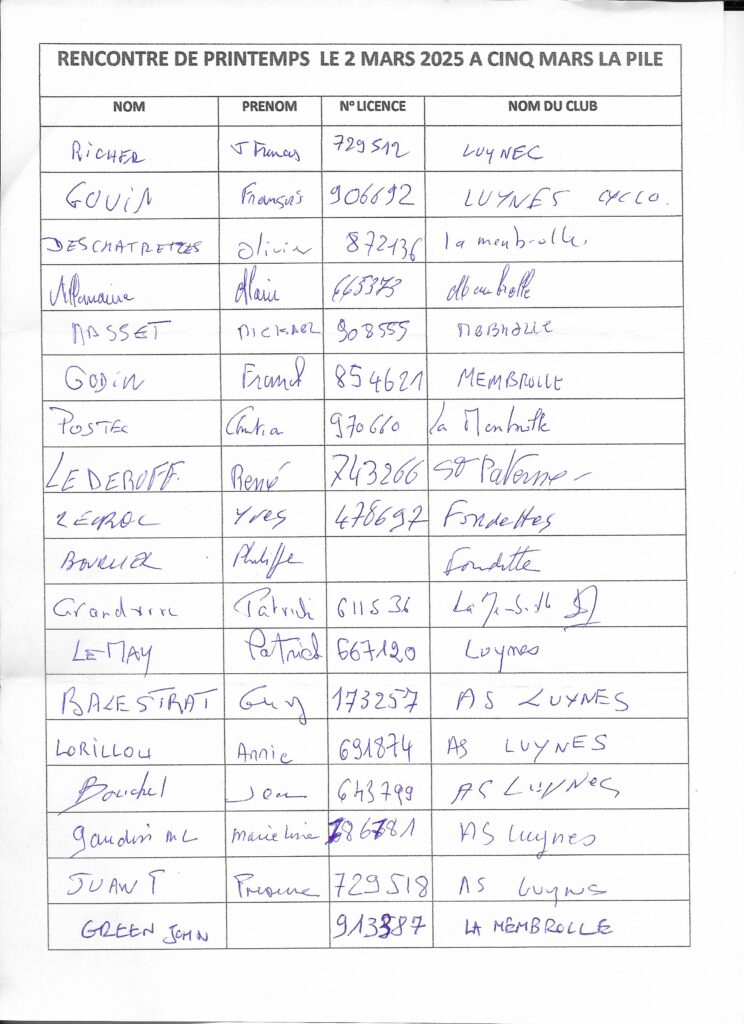 RENCONTRE DE PRINTEMPS LE 2 MARS 2025 A CINQ MARS LA PILE
NOM PRENOM N° LICENCE NOM DU CLUB
RICHER J Francis 729512 LUYNEC
GOUIN François 906692 LUYNES CYCLO.
DESCHATRETTES Olivier 872136 la membrolle.
Alain 665373
MASSET MICKAEL 908555
GODIN Franck 854621 MEMBROLLE
POSTEC 970660 La Membrolle
LE DEROFF. René 743266 St Paterne -
Yves 478697 Fondettes
Philippe Fondette
Patrick 611536
LE MAY Patrick 667120 Luynes
BALESTRAT Guy 173257 AS LUYNES
LORILLOU Annie 691874 AS LUYNES
Bouchet Jean 643799 AS LUYNES
gaudin ML Marieline 786781 AS Luynes
729518 AS Luynes
GREEN JOHN 913387 LA MEMBROLLE